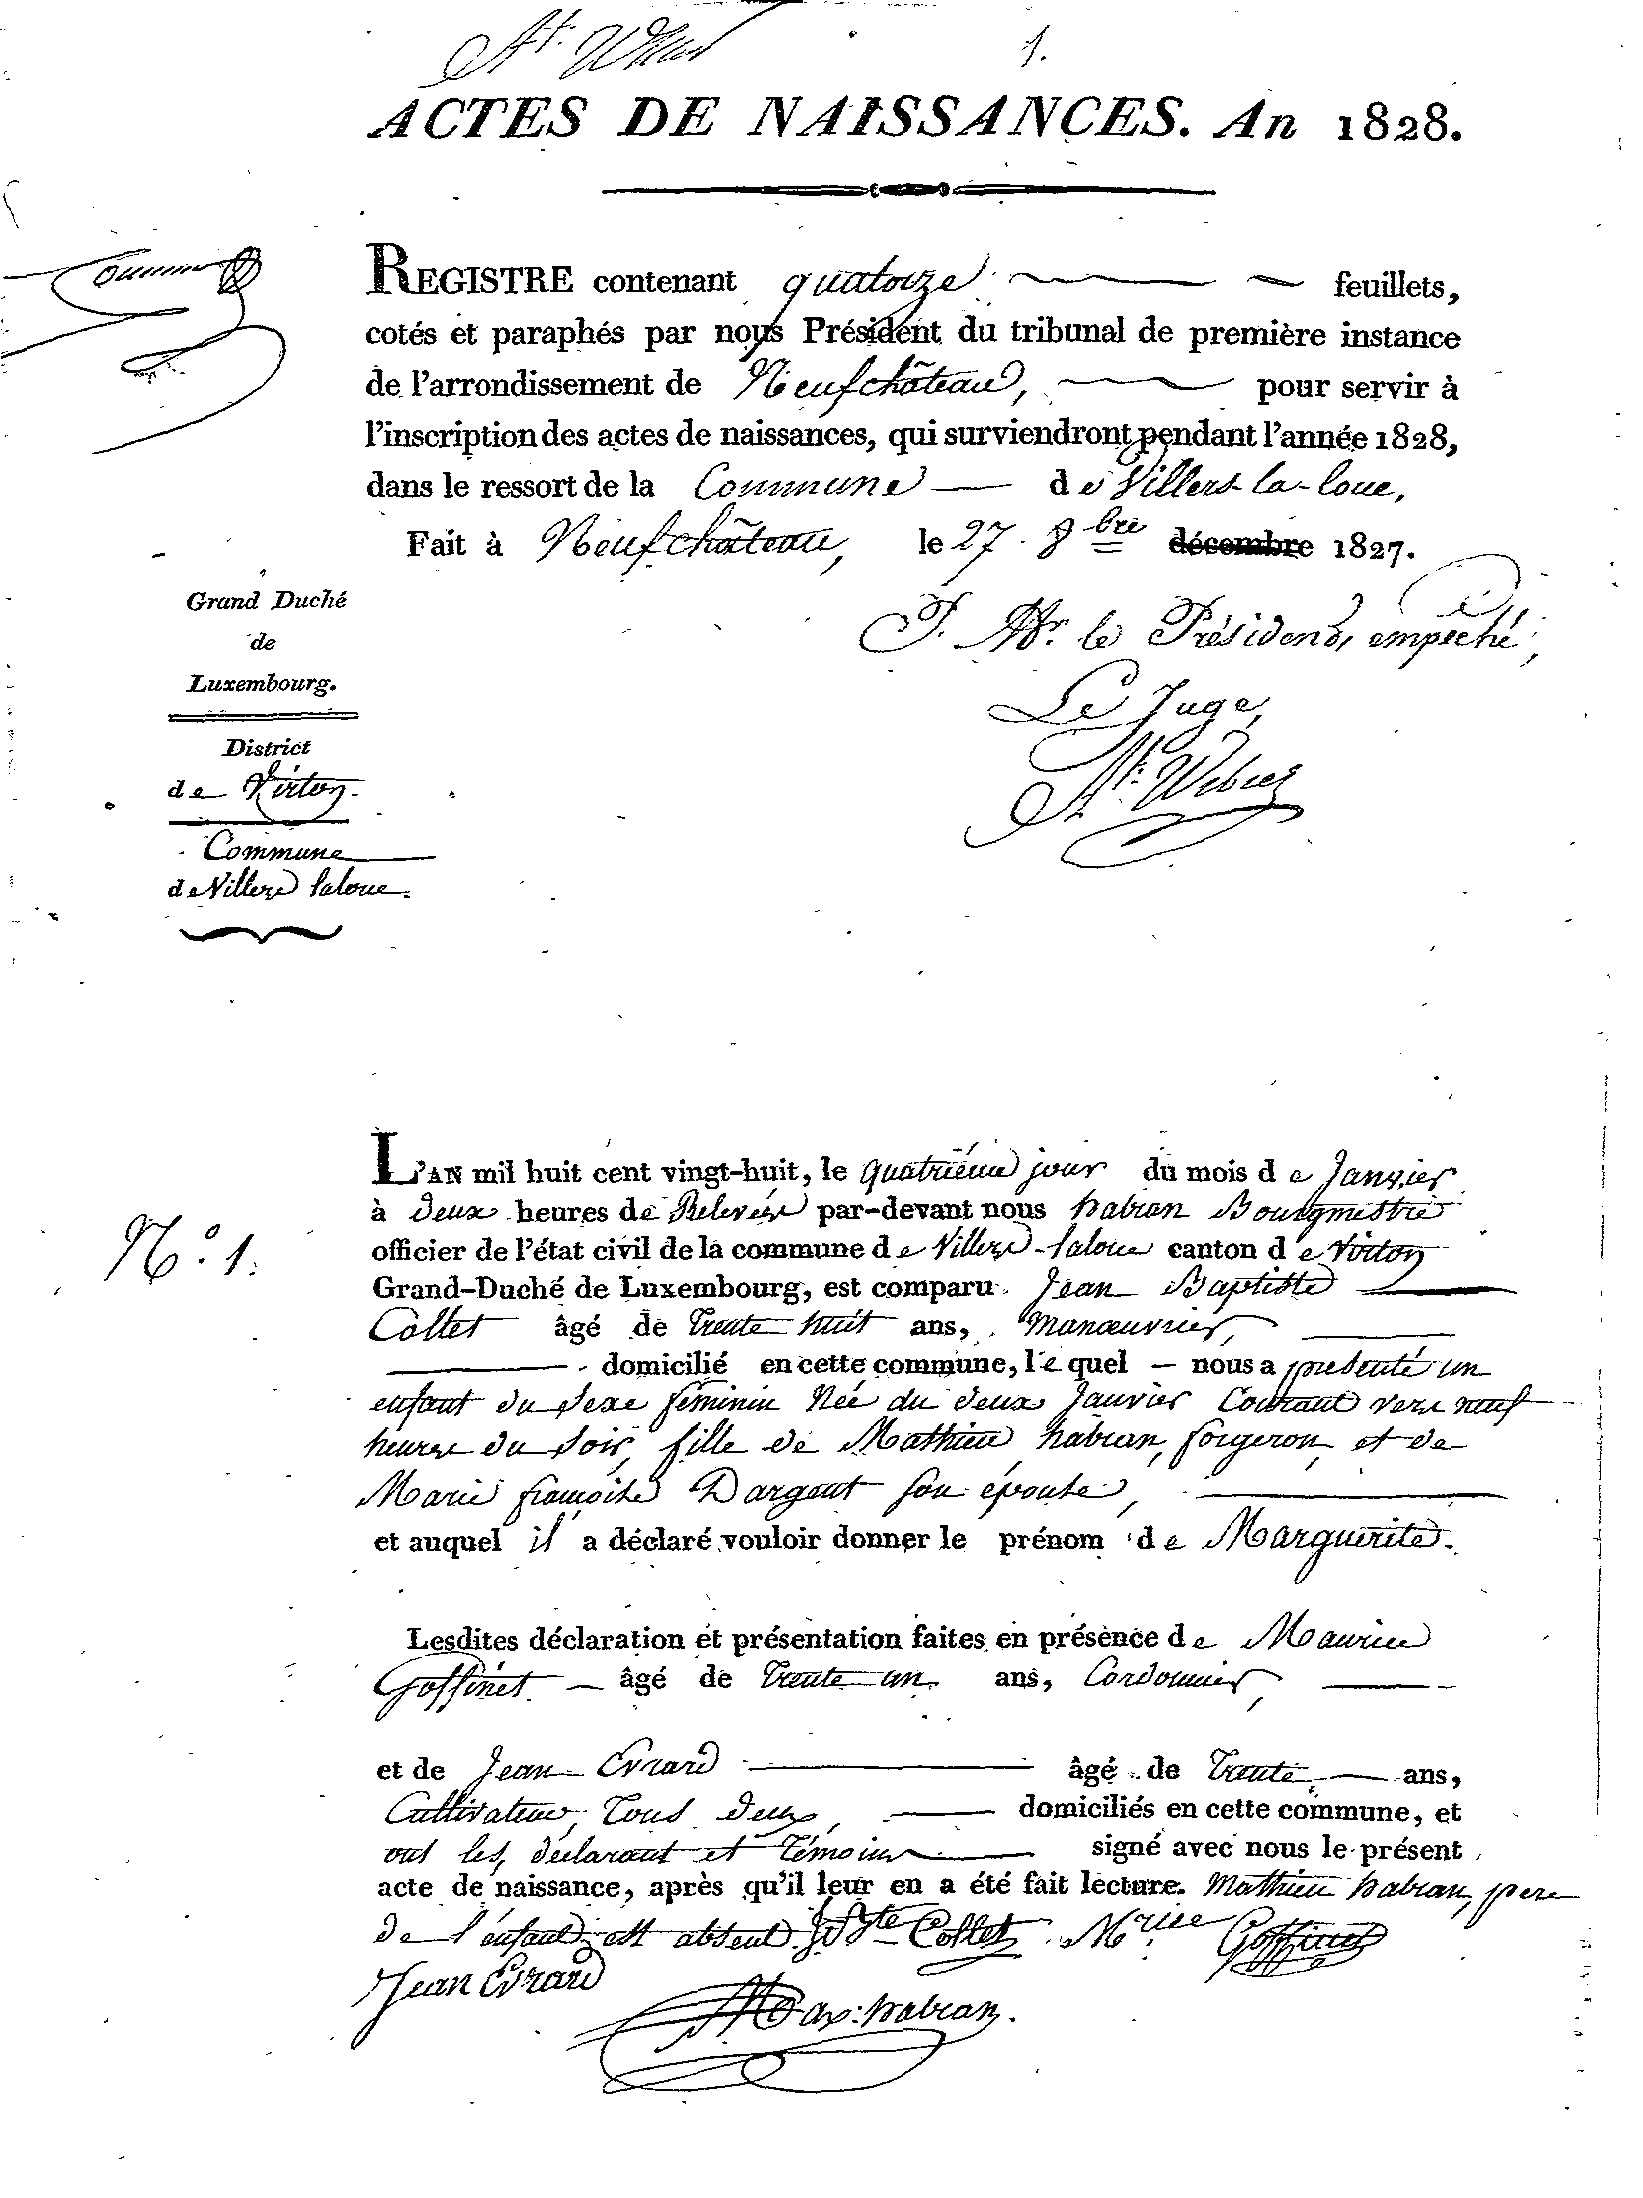 1.
ACTES DE NAISSANCES. An 1828.
REGISTRE contenant quatorze feuillets,
cotés et paraphés par nous Président du tribunal de première instance
de l'arrondissement de Neufchâteau, pour servir à
l'inscription des actes de naissances, qui surviendront pendant l'année 1828,
dans le ressort de la Commune de Villers-la-loue.
Fait à Neufchâteau, le 27. 8bre décembre 1827.
Grand Duché
de
Luxembourg.
District
de Virton.
Commune
de Villers laloue.
P. Mr. le Président, empêché,
Le Juge,
L'AN mil huit cent vingt-huit, le quatrième jour du mois de Janvier
à deux heures de Relevée par-devant nous habran Bourgmestre
officier de l'état civil de la commune de Villers-laloue canton de Virton
Grand-Duché de Luxembourg, est comparu Jean Baptiste
Collet âgé de trente huit ans, manœuvrier,
domicilié en cette commune, lequel nous a présenté un
enfant du sexe féminin Née du deux Janvier Courant vers neuf
heures du soir, fille de Mathieu habran, forgeron, et de
Marie françoise Dargent son épouse,
et auquel il a déclaré vouloir donner le prénom de Marguerite.
N.° 1.
Lesdites déclaration et présentation faites en présence de Maurice
Goffinet âgé de trente un ans, Cordonnier,
et de Jean Evrard âgé de trente ans,
Cultivateur, tous deux, domiciliés en cette commune, et
ont les, déclarant et témoins signé avec nous le présent
acte de naissance, après qu'il leur en a été fait lecture. Mathieu habran, père
de l'enfant est absent. JBte Collet Mrice Goffinet
Jean Evrard
Max: habran.